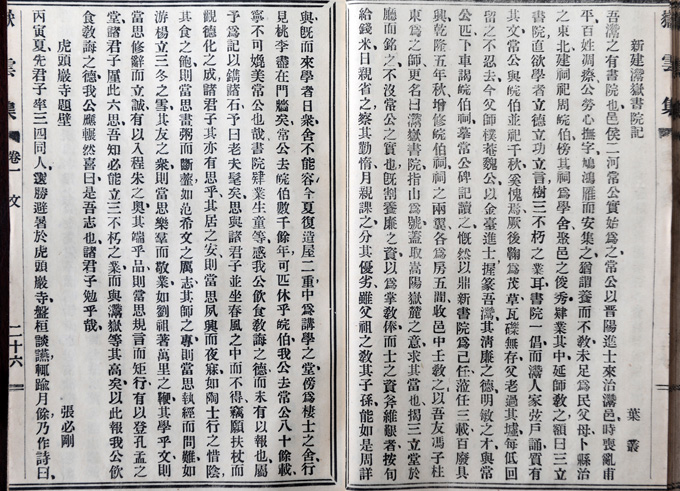 新建灊嶽書院記
葉叢
吾灊之有書院也邑侯二河常公實始爲之常公以晉陽進士來治灊邑時喪亂甫
平百姓凋瘵公勞心撫字鳩鴻雁而安集之猶謂養而不教未足爲民父母卜縣治
之東北建祠祀周皖伯傍其祠爲學舍聚邑之俊秀肄業其中延師教之額曰三立
書院直欲學者立德立功立言樹三不朽之業耳書院一倡而灊人家弦戶誦質有
其文常公與皖伯並祀千秋奚愧焉厥後鞫爲茂草瓦礫無存父老過其墟每低回
留之不忍去今父師樸菴魏公以金臺進士握篆吾灊其清廉之德明敏之才與常
公匹下車謁皖伯祠摹常公碑記讀之慨然以鼎新書院爲己任蒞任三載百廢具
興乾隆五年秋增修皖伯祠祠之兩翼各爲房五間收邑中士教之以吾友馮子柱
東爲之師更名曰灊嶽書院指山爲號蓋取嵩陽嶽麓之意求其當也揭三立堂於
廳而銘之不沒常公之實也既割養廉之資以爲掌教俸而士之資斧維艱者按旬
給錢米日親省之察其勤惰月親課之分其優劣雖父祖之教其子孫能如是周詳
與既而來學者日衆舍不能容今夏復造屋二重中爲講學之堂傍爲棲士之舍行
見桃李盡在門牆矣常公去皖伯數千餘年可匹休乎皖伯我公去常公八十餘載
寧不可媲美常公也哉書院肄業生童等感我公飲食教誨之德而未有以報也屬
予爲記以鐫諸石予曰老夫髦矣思與諸君子並坐春風之中而不得竊願扶杖而
觀德化之成諸君子其亦有思乎其居之安則當思夙興而夜寐如陶士行之惜陰
其食之飽則當思畫粥而斷虀如范希文之厲志其師之專則當思執經而問難如
游楊立三冬之雪其友之衆則當思樂羣而敬業如劉祖著萬里之鞭其學乎文則
當思修辭而立誠有以入程朱之奧其端乎品則當思規言而矩行有以登孔孟之
堂諸君子厪此六思吾知必能立三不朽之業而與灊嶽等其高矣以此報我公飲
食教誨之德我公應囅然喜曰是吾志也諸君子勉乎哉
虎頭巖寺題壁
張必剛
丙寅夏先君子率三四同人選勝避暑於虎頭巖寺盤桓談讌輒踰月餘乃作詩曰
嶽雲集
卷一 文
二十六